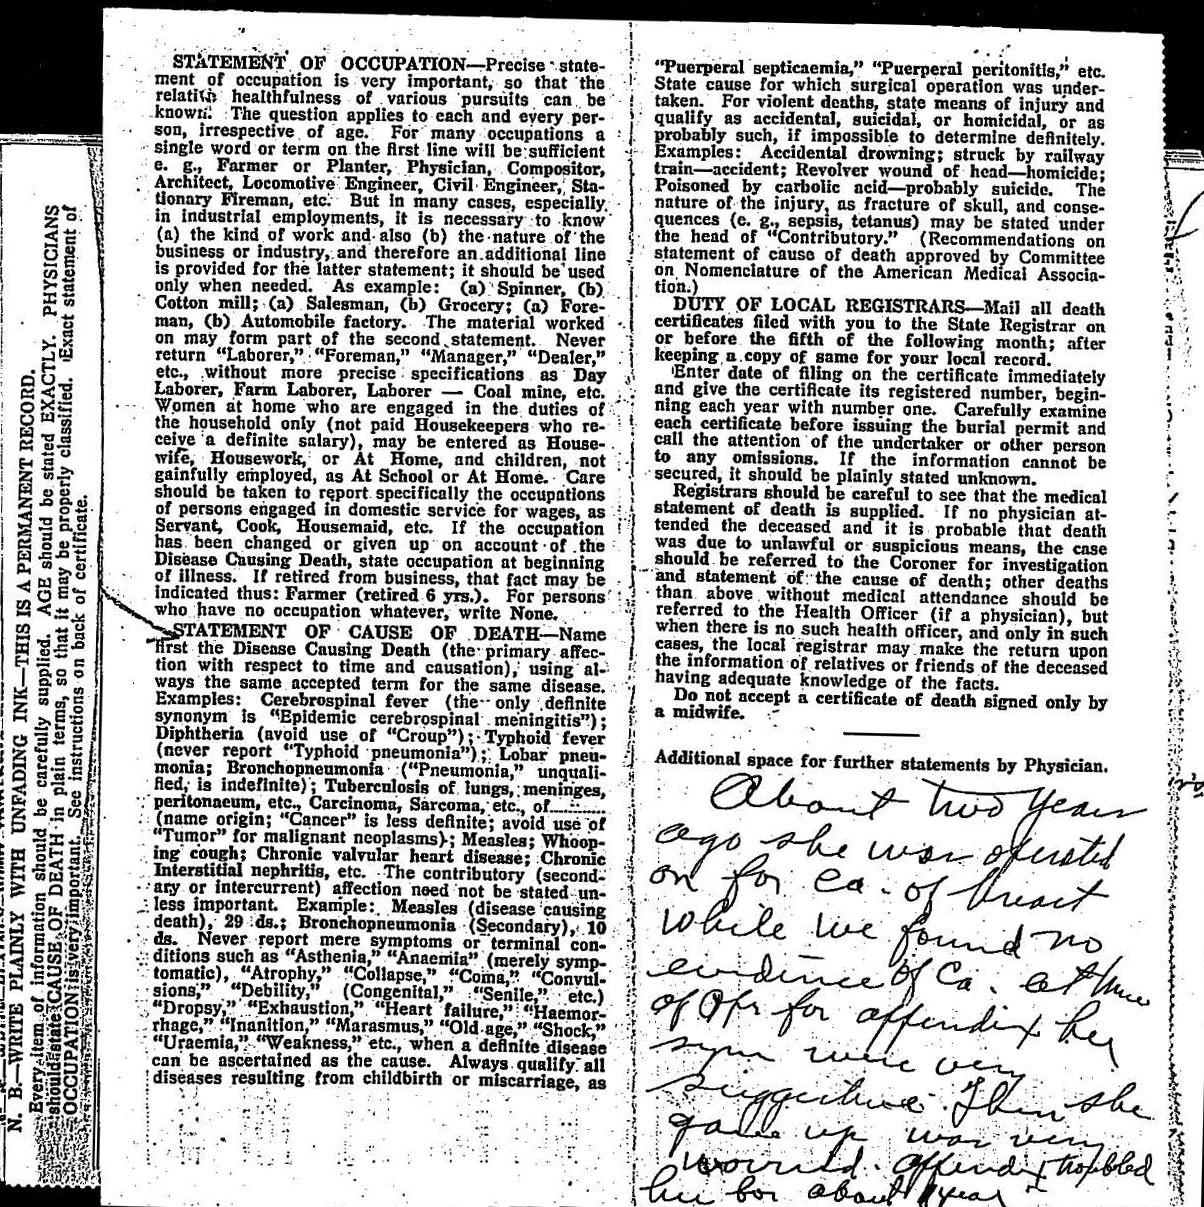 N. B.—WRITE PLAINLY WITH UNFADING INK—THIS IS A PERMANENT RECORD.
Every item of information should be carefully supplied. AGE should be stated EXACTLY. PHYSICIANS
should state CAUSE OF DEATH in plain terms, so that it may be properly classified. Exact statement of
OCCUPATION is very important. See instructions on back of certificate.
STATEMENT OF OCCUPATION—Precise state-
ment of occupation is very important, so that the
relative healthfulness of various pursuits can be
known. The question applies to each and every per-
son, irrespective of age. For many occupations a
single word or term on the first line will be sufficient
e. g., Farmer or Planter, Physician, Compositor,
Architect, Locomotive Engineer, Civil Engineer, Sta-
tionary Fireman, etc. But in many cases, especially
in industrial employments, it is necessary to know
(a) the kind of work and also (b) the nature of the
business or industry, and therefore an additional line
is provided for the latter statement; it should be used
only when needed. As example: (a) Spinner, (b)
Cotton mill; (a) Salesman, (b) Grocery; (a) Fore-
man, (b) Automobile factory. The material worked
on may form part of the second statement. Never
return "Laborer," "Foreman," "Manager," "Dealer,"
etc., without more precise specifications as Day
Laborer, Farm Laborer, Laborer — Coal mine, etc.
Women at home who are engaged in the duties of
the household only (not paid Housekeepers who re-
ceive a definite salary), may be entered as House-
wife, Housework, or At Home, and children, not
gainfully employed, as At School or At Home. Care
should be taken to report specifically the occupations
of persons engaged in domestic service for wages, as
Servant, Cook, Housemaid, etc. If the occupation
has been changed or given up on account of the
Disease Causing Death, state occupation at beginning
of illness. If retired from business, that fact may be
indicated thus: Farmer (retired 6 yrs.). For persons
who have no occupation whatever, write None.
STATEMENT OF CAUSE OF DEATH—Name
first the Disease Causing Death (the primary affec-
tion with respect to time and causation), using al-
ways the same accepted term for the same disease.
Examples: Cerebrospinal fever (the only definite
synonym is "Epidemic cerebrospinal meningitis");
Diphtheria (avoid use of "Croup"); Typhoid fever
(never report "Typhoid pneumonia"); Lobar pneu-
monia; Bronchopneumonia ("Pneumonia," unquali-
fied, is indefinite); Tuberculosis of lungs, meninges,
peritonaeum, etc., Carcinoma, Sarcoma, etc., of............
(name origin; "Cancer" is less definite; avoid use of
"Tumor" for malignant neoplasms); Measles; Whoop-
ing cough; Chronic valvular heart disease; Chronic
Interstitial nephritis, etc. The contributory (second-
ary or intercurrent) affection need not be stated un-
less important. Example: Measles (disease causing
death), 29 ds.; Bronchopneumonia (Secondary), 10
ds. Never report mere symptoms or terminal con-
ditions such as "Asthenia," "Anaemia" (merely symp-
tomatic), "Atrophy," "Collapse," "Coma," "Convul-
sions," "Debility," (Congenital," "Senile," etc.)
"Dropsy," "Exhaustion," "Heart failure," "Haemor-
rhage," "Inanition," "Marasmus," "Old age," "Shock,"
"Uraemia," "Weakness," etc., when a definite disease
can be ascertained as the cause. Always qualify all
diseases resulting from childbirth or miscarriage, as
"Puerperal septicaemia," "Puerperal peritonitis," etc.
State cause for which surgical operation was under-
taken. For violent deaths, state means of injury and
qualify as accidental, suicidal, or homicidal, or as
probably such, if impossible to determine definitely.
Examples: Accidental drowning; struck by railway
train—accident; Revolver wound of head—homicide;
Poisoned by carbolic acid—probably suicide. The
nature of the injury, as fracture of skull, and conse-
quences (e. g., sepsis, tetanus) may be stated under
the head of "Contributory." (Recommendations on
statement of cause of death approved by Committee
on Nomenclature of the American Medical Associa-
tion.)
DUTY OF LOCAL REGISTRARS—Mail all death
certificates filed with you to the State Registrar on
or before the fifth of the following month; after
keeping a copy of same for your local record.
Enter date of filing on the certificate immediately
and give the certificate its registered number, begin-
ning each year with number one. Carefully examine
each certificate before issuing the burial permit and
call the attention of the undertaker or other person
to any omissions. If the information cannot be
secured, it should be plainly stated unknown.
Registrars should be careful to see that the medical
statement of death is supplied. If no physician at-
tended the deceased and it is probable that death
was due to unlawful or suspicious means, the case
should be referred to the Coroner for investigation
and statement of the cause of death; other deaths
than above without medical attendance should be
referred to the Health Officer (if a physician), but
when there is no such health officer, and only in such
cases, the local registrar may make the return upon
the information of relatives or friends of the deceased
having adequate knowledge of the facts.
Do not accept a certificate of death signed only by
a midwife.
Additional space for further statements by Physician.
About two years
ago she was operated
on for Ca. of breast
While we found no
evidence of Ca. at time
of Opr for appendix her
sym were very
suggestive. Then she
gave up was very
worried. Appendix troubled
her for about 1 year